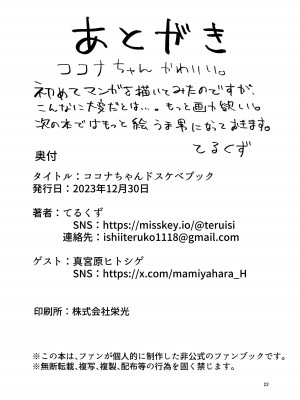 あとがき
ココナちゃんかわいい。
初めてマンガを描いてみたのですが、
こんなに大変だとは…。もっと画力欲しい。
次の本ではもっと絵うま男になっておきます。
てるくず
奥付
タイトル：ココナちゃんドスケベブック
発行日：2023年12月30日
著者：てるくず
SNS：https://misskey.io/@teruisi
連絡先：ishiiteruko1118@gmail.com
ゲスト：真宮原ヒトシゲ
SNS：https://x.com/mamiyahara_H
印刷所：株式会社栄光
※この本は、ファンが個人的に制作した非公式のファンブックです。
※無断転載、複写、複製、配布等の行為を固く禁じます。
22